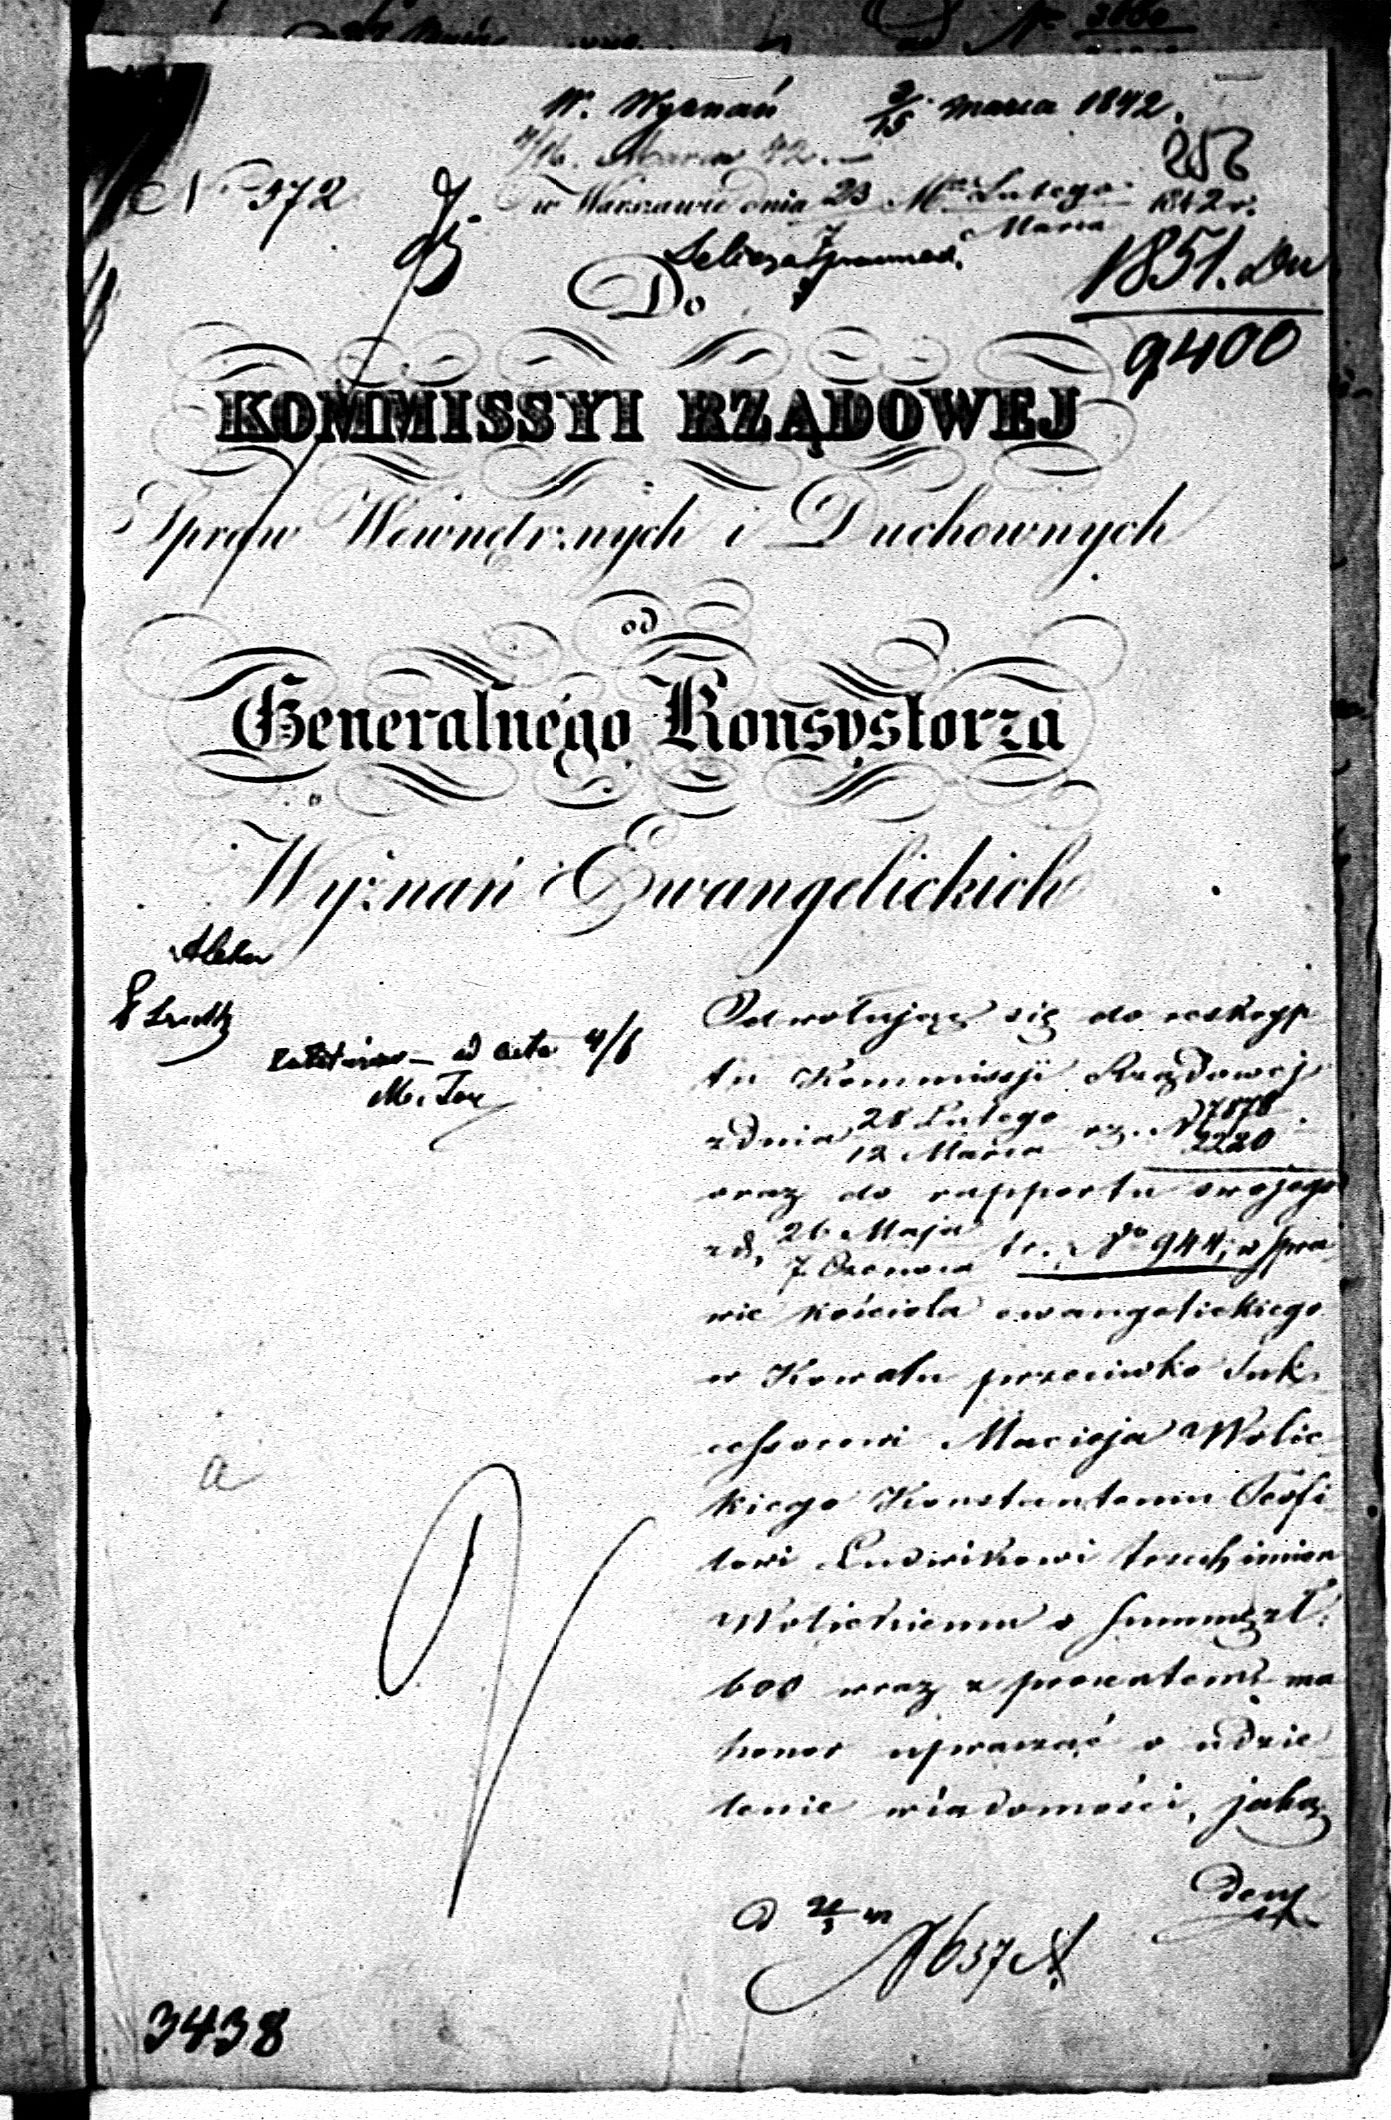 W. Wyznań 3/15 Marca 1842.
4/16. Marca 42.
256
No 372
w Warszawie dnia 23 Mca Lutego 1842 r.
7 Marca
1851. Du
9400
Do
KOMMISSYI RZĄDOWEJ
Spraw Wewnętrznych i Duchownych
od
Generalnego Konsystorza
Wyznań Ewangelickich
ad acta 4/6
Odwołując się do reskryp
tu Kommissyi Rządowej
z dnia 28 Lutego rz. N 7878
12 Marca 2220
oraz do rapportu swojego
z d. 26 Maja tr. No 944, w spra
7 Czerwca
wie kościoła ewangelickiego
w Kowalu przeciwko Suk
cessorowi Macieja Wolic
kiego Konstantemu Teofi
lowi Ludwikowi trzech imion
Wolickiemu o summę zł.
600 wraz z procentem, ma
honor upraszać o udzie
lenie wiadomości, jaką
a
N 637
3438